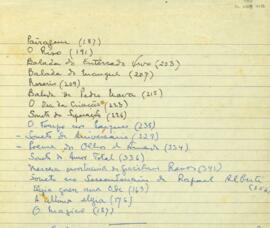 Paisagem (187)
O Riso (191)
Balada do Enterrado Vivo (203)
Balada do Mangue (207)
Rosário (209)
Balada de Pedro Nava (215)
O Dia da Criação (225)
Soneto de Separação (226)
O tempo nos parques (238)
- Soneto de Aniversário (329)
- Poema dos Olhos da Amada (334)
Soneto do Amor Total (336)
Máscara mortuária de Graciliano Ramos (341)
Soneto no Sessentenário de Rafael Alberti
Elegia quase uma Ode (163)
A última elegia (176)
O mágico (187)